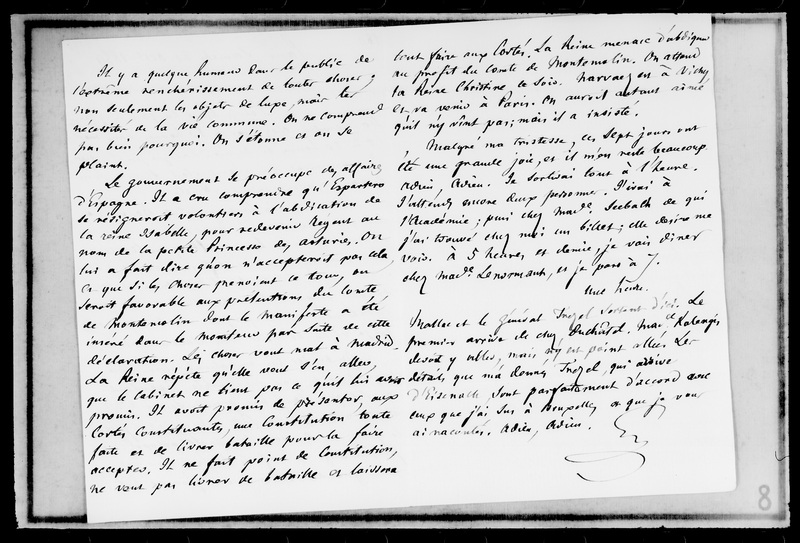 Il y a quelque humeur dans le public de
l'extrême renchérissement de toutes choses,
non seulement les objets de luxe, mais les
nécessités de la vie commune. On ne comprend
pas bien pourquoi. On s'étonne et on se
plaint.
Le gouvernement se préoccupe des affaires
d'Espagne. Il a cru comprendre qu'Espartero
se résigneroit volontiers à l'abdication de
la reine Isabelle, pour redevenir Régent au
nom de la petite Princesse des asturies. On
lui a fait dire qu'on n'accepteroit pas cela
et que si les choses prenoient ce tour, on
seroit favorable aux prétentions du comte
de montemolin dont le manifeste a été
inséré dans le moniteur par suite de cette
déclaration. Les choses vont mal à madrid.
La Reine répète qu'elle veut s'en aller,
que le cabinet ne tient pas ce qu'il lui avoit
promis. Il avoit promis de présenter, aux
Cortès constituantes, une Constitution toute
faite et de livrer bataille pour la faire
accepter. Il ne fait point de Constitution,
ne veut pas livrer de bataille et laissera
tout faire aux Cortès. La Reine menace d'abdiquer
au profit du comte de Montemolin. On attend
la Reine Christine ce soir. narvaez est à Vichy
et va venir à Paris. On auroit autant aimé
qu'il n'y vînt pas; mais il a insisté.
Malgré ma tristesse, ces sept jours ont
été une grande joie, et il m'en reste beaucoup.
Adieu, Adieu. Je sortirai tout à l'heure.
J'attends encore deux personnes. J'irai à
l'Académie; puis chez made Seebach de qui
j'ai trouvé chez moi un billet; elle désire me
voir. à 5 heures et demie, je vais dîner
chez made Lenormant, et je pars à 7.
Une heure.
Mallac et le général Trézel sortent d'ici. Le
premier arrive de chez Duchâtel. made Kalergis
devoit y aller, mais n'y est point allée. Les
détails que m'a donnés Trézel, qui arrive
d'Eisenach, sont parfaitement d'accord avec
ceux que j'ai sus à Bruxelles et que je vous
ai racontés. Adieu, Adieu.
8